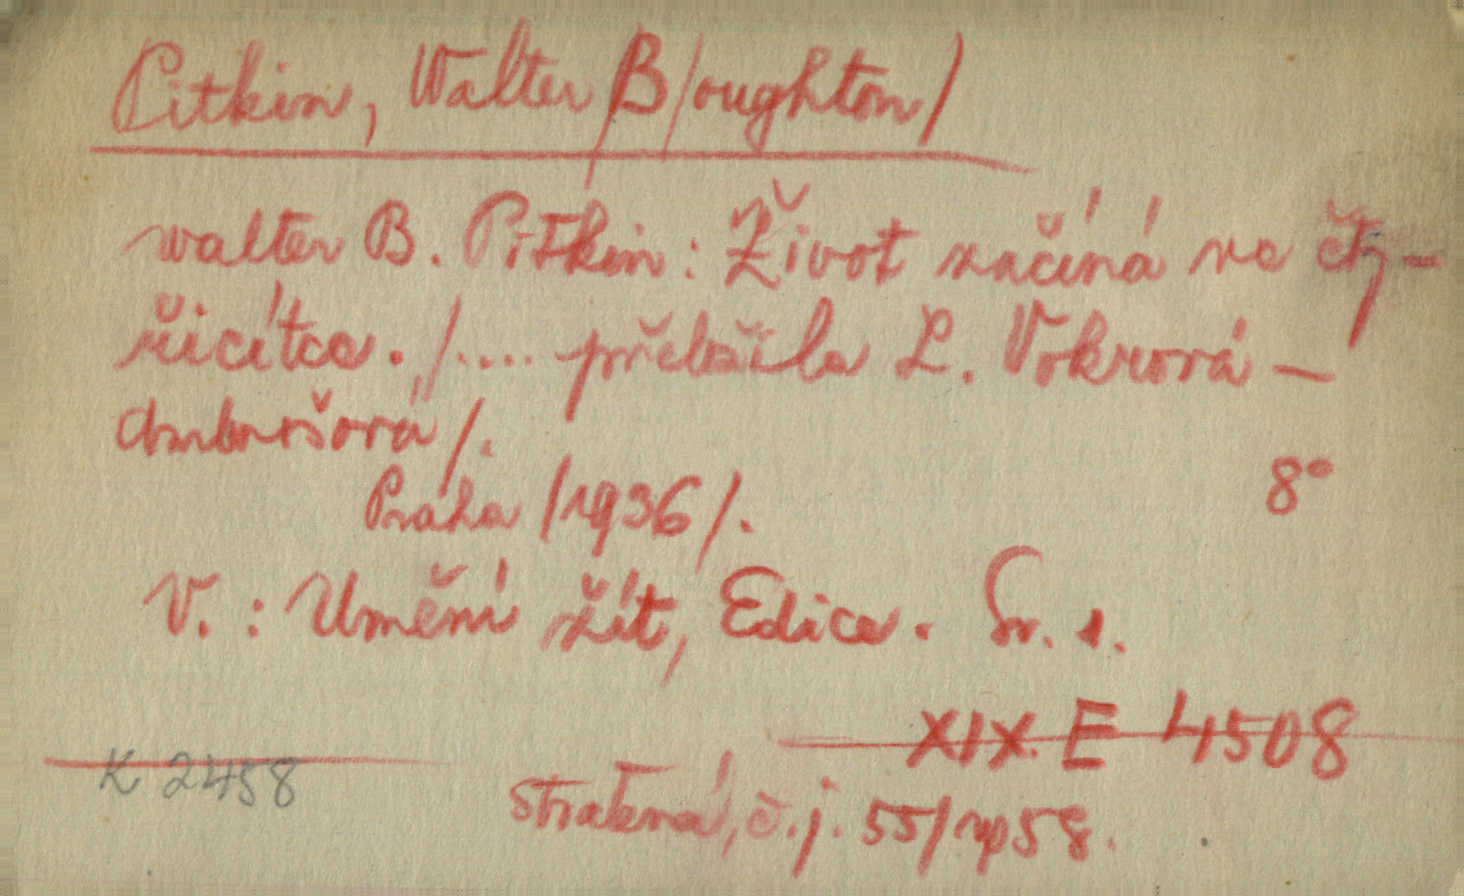 Pitkin, Walter B/oughton/
Walter B. Pitkin: Život začíná ve čty-
řicítce. /.... přeložila L. Vokrová-
Ambrošová/.
Praha /1936/. 8°
V.: Umění žít, Edice. Sv. 1.
XIX E 4508
K 2458
Ztratená, č.j. 55/1958.